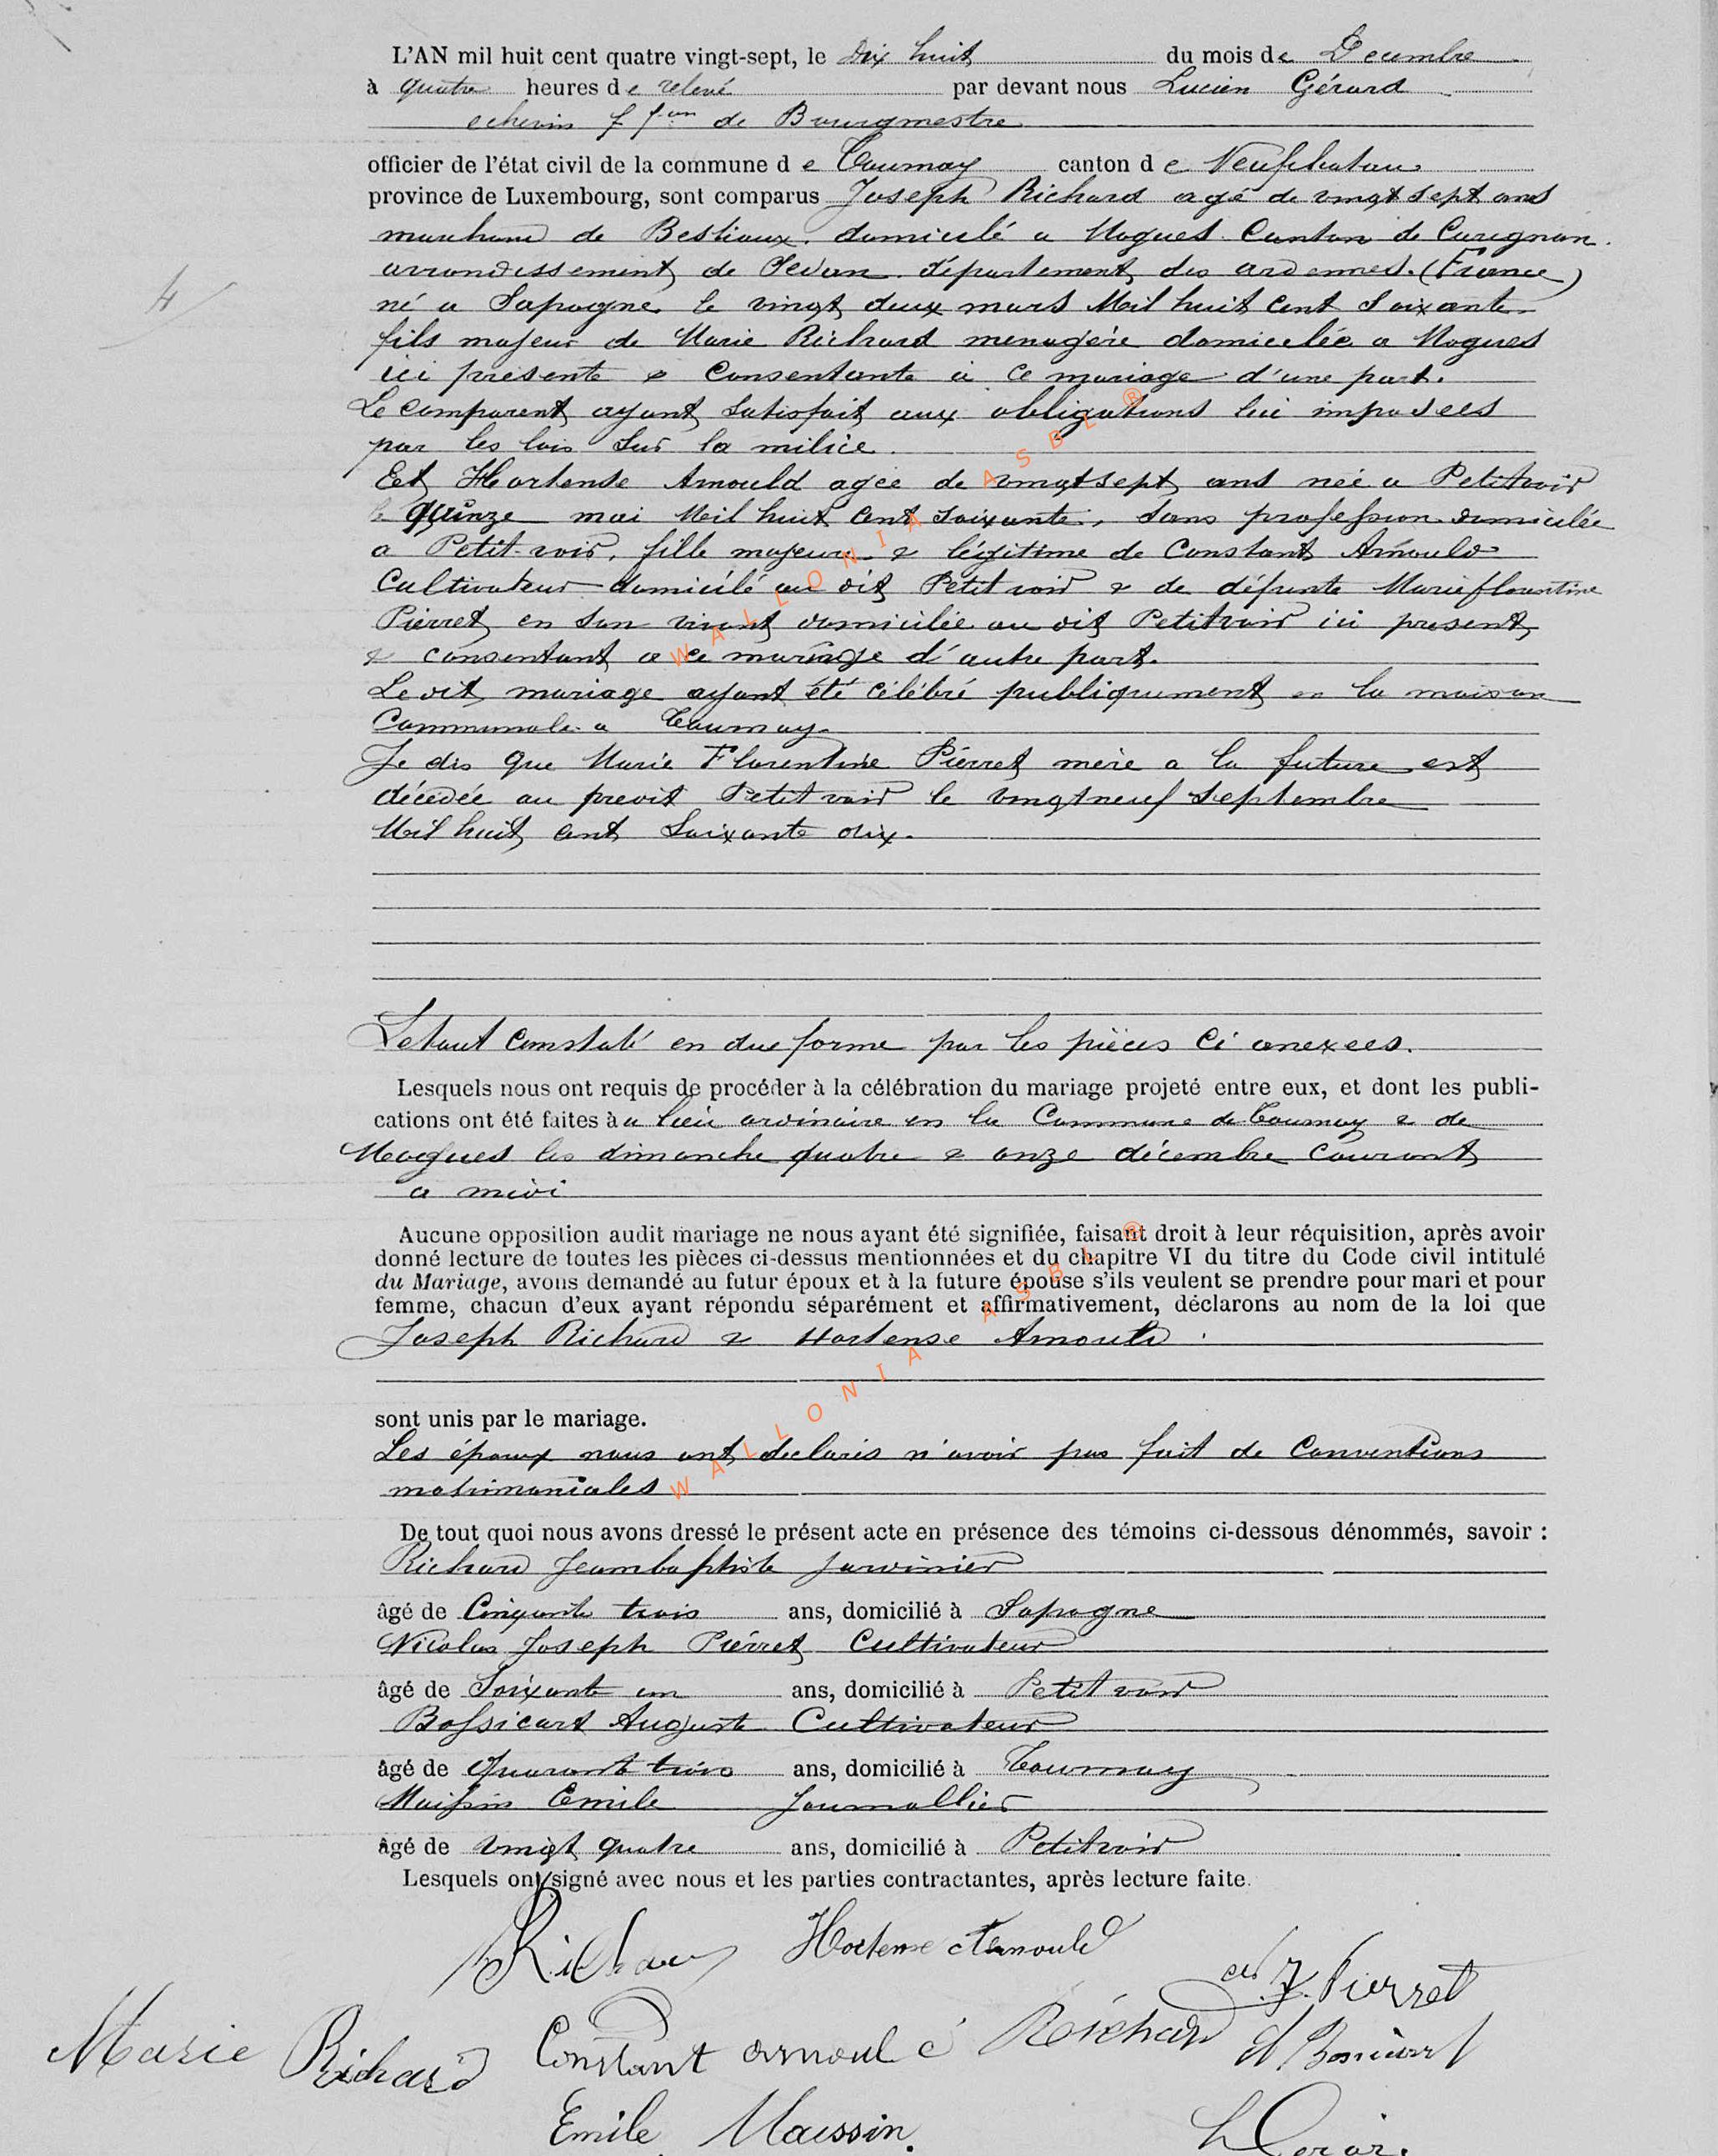 L'AN mil huit cent quatre vingt-sept, le dix huit du mois de Decembre
à quatre heures de relevé par devant nous Lucien Gérard
echevin f fon de Bourgmestre
officier de l'état civil de la commune de Tournay canton de Neufchateau
province de Luxembourg, sont comparus Joseph Richard agé de vingt sept ans
marchand de Bestiaux. domicilé a Mogues Canton de Carignan.
arrondissement de Sedan. département des ardennes. (France)
né a Sapogne le vingt deux mars Mil huit Cent Soixante.
fils majeur de Marie Richard menagère domiciliée a Mogues
ici présente & Consentante à ce mariage d'une part.
Le comparent ayant Satisfait aux obligations lui imposees
par les lois Sur la milice.
Et Hortense Arnould agée de vingtsept ans née a Petitvoir
le quinze mai Mil huit Cent Soixante, Sans profession domicilée
a Petit-voir, fille majeure & légitime de Constant Arnould
Cultivateur domicilé au dit Petitvoir & de défunte Marieflorentine
Pierret en Son vivant domicilée au dit Petitvoir ici présent
& consentant a ce mariage d'autre part.
Le dit mariage ayant été célébré publiquement en la maison
Communale a Tournay.
Je dis que Marie Florentine Piérret mère a la future est
décedée au predit Petitvoir le vingtneuf Septembre
Mil huit cent Soixante dix.
4
Letout Constaté en due forme par les pièces Ci anexees.
Lesquels nous ont requis de procéder à la célébration du mariage projeté entre eux, et dont les publi-
cations ont été faites à u lieu ordinaire en la Commune de Tournay & de
Mogues les dimanche quatre & onze décembre Courant
a midi
Aucune opposition audit mariage ne nous ayant été signifiée, faisant droit à leur réquisition, après avoir
donné lecture de toutes les pièces ci-dessus mentionnées et du chapitre VI du titre du Code civil intitulé
du Mariage, avons demandé au futur époux et à la future épouse s'ils veulent se prendre pour mari et pour
femme, chacun d'eux ayant répondu séparément et affirmativement, déclarons au nom de la loi que
Joseph Richard & Hortense Arnould
sont unis par le mariage.
Les époux nous ont declaris n'avoir pas fait de Conventions
matrimoniales
De tout quoi nous avons dressé le présent acte en présence des témoins ci-dessous dénommés, savoir :
Richard Jeanbaptiste Jardinier
âgé de Cinquante trois ans, domicilié à Sapogne
Nicolas Joseph Piérret Cultivateur
âgé de Soixante un ans, domicilié à Petitvoir
Bossicart Auguste Cultivateur
âgé de Quarante trois ans, domicilié à Tournay
Maissin Emile Journallier
âgé de vingt quatre ans, domicilié à Petitvoir
Lesquels ont signé avec nous et les parties contractantes, après lecture faite.
Richard Hortense Arnould
J. Pierret
Marie Richard Constant arnould Richard
Emile Maissin. L Gérar.
WALLONIA ASBL ®
WALLONIA ASBL ®